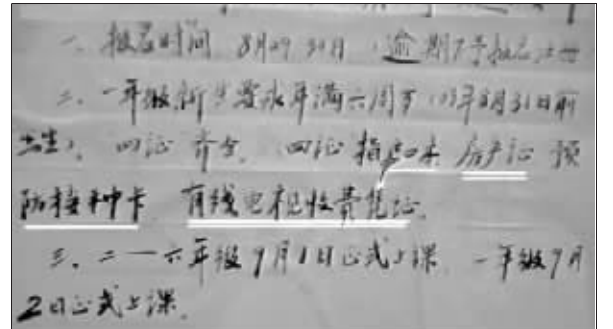 一、报名时间 8月29 30日，逾期不予报名注册
二、一年级新生要求年满六周岁（03年8月31日前
出生），四证齐全，四证指户口本 房产证 预
防接种卡 有线电视收费凭证。
三、二一六年级9月1日正式上课 一年级9月
2日正式上课。